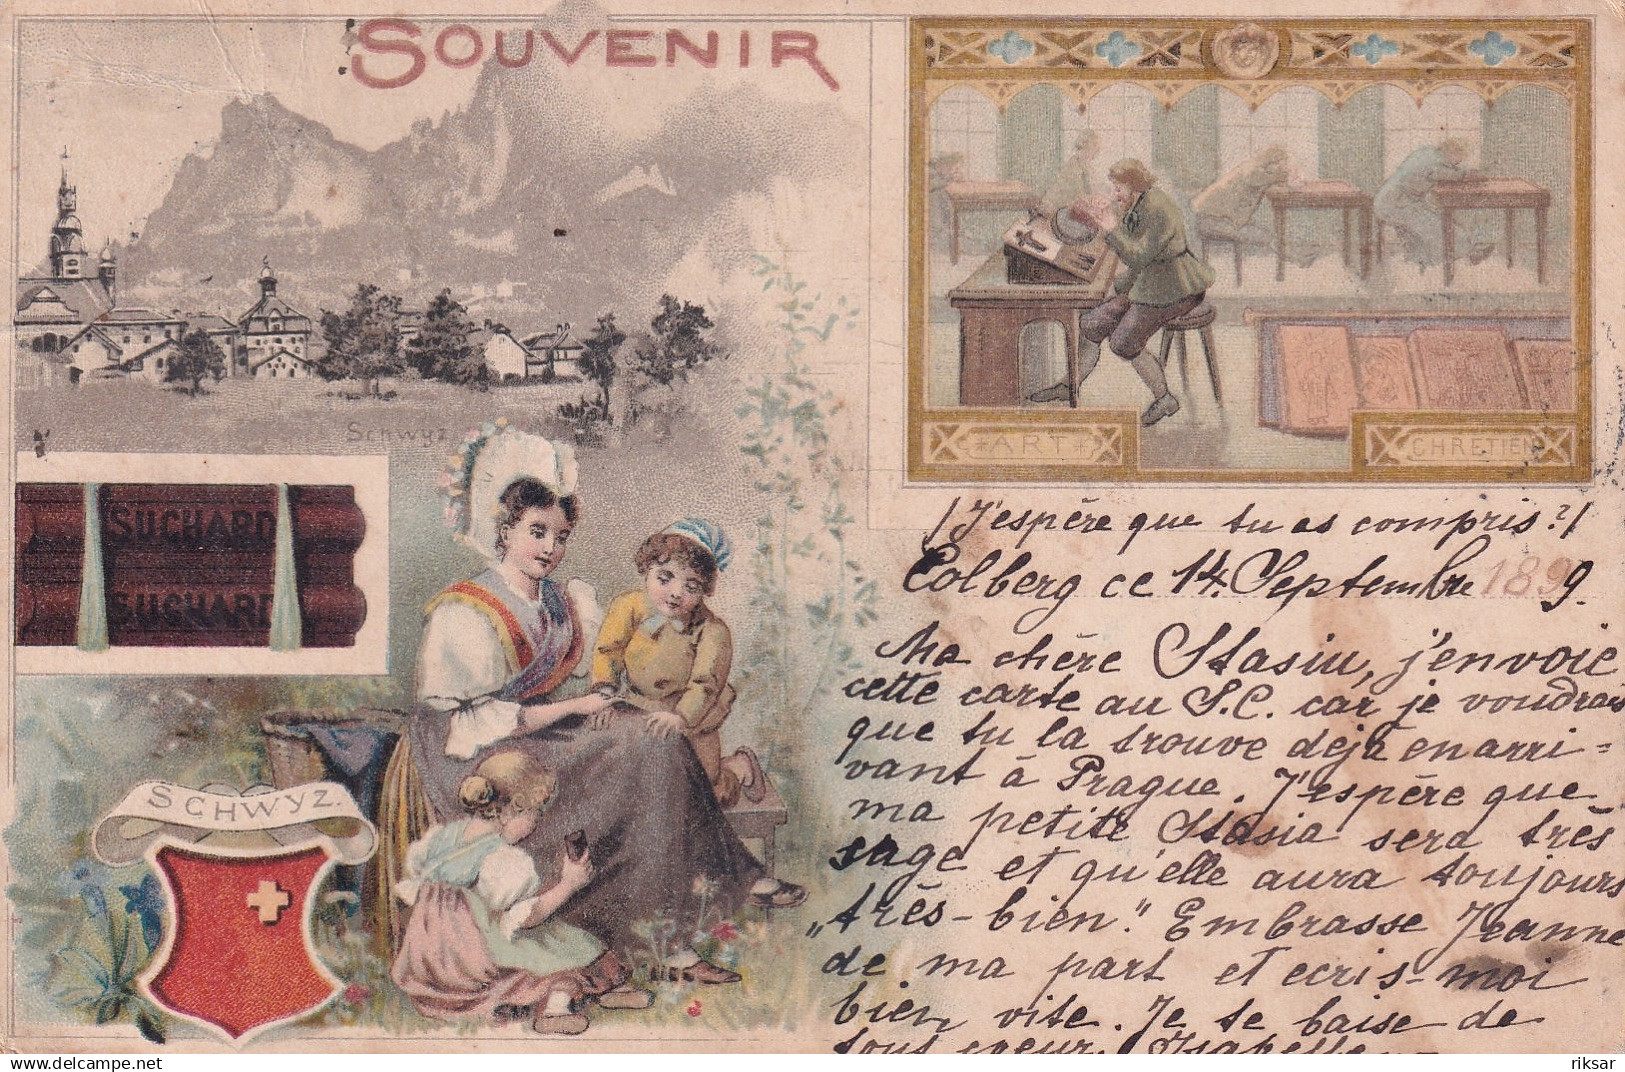 SOUVENIR
Schwyz
SUCHARD
SUCHARD
SCHWYZ.
ART
CHRETIEN
(J'espère que tu as compris?)
Colberg ce 14. Septembre 1899.
Ma chère Stasiu, j'envoie
cette carte au S.C. car je voudrais
que tu la trouve dejà en arri=
vant à Prague. J'espère que
ma petite Stasia sera très
sage et qu'elle aura toujours
„très-bien". Embrasse Jeanne
de ma part et ecris-moi
bien vite. Je te baise de
tout coeur, Isabelle
riksar